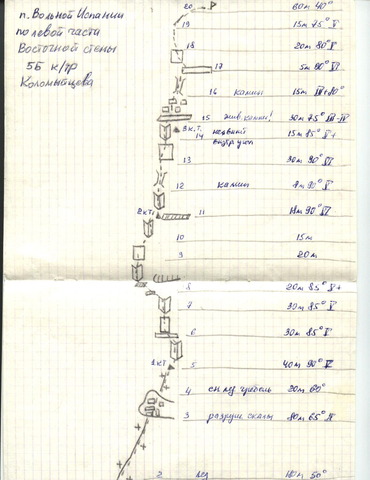 п. Вольной Испании
по левой части
Восточной стены
5Б к/тр
Коломыйцева
20 60м 40°
19 15м 75° V
18 20м 80° V
17 5м 90° VI
16 камин 15м III+ 40°
15 жив. камни! 30м 75° III-IV
3 к.т.
14 неявный внутр угол 15м 85° V+
13 30м 90° VI
12 камин 7м 90° V
2 кт.
11 14м 90° VI
10 15м
9 20м
8 20м 85° V+
7 30м 85° V
6 30м 85° V
1 кт
5 40м 90° V
4 сн. гребень 20м 60°
3 разруш скалы 80м 65° IV
2 лед 180м 50°